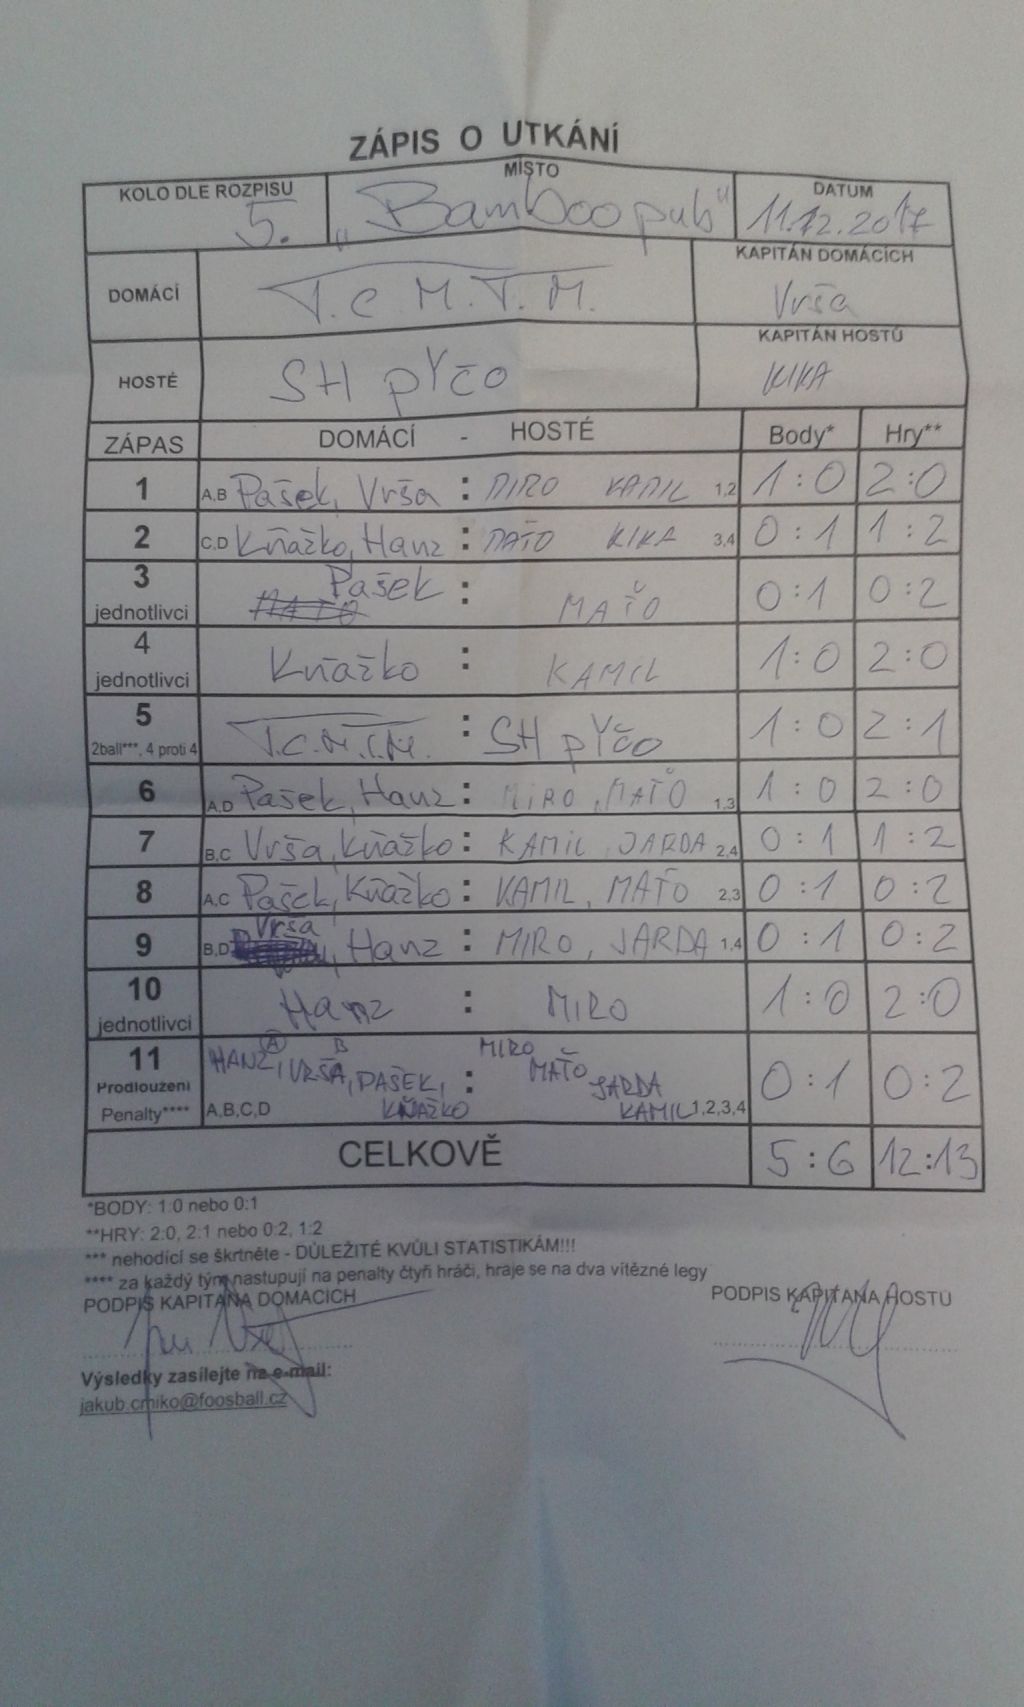 ZÁPIS O UTKÁNÍ
KOLO DLE ROZPISU MÍSTO DATUM
5. „Bamboo pub" 11.12.2017
DOMÁCÍ T.C.M.T.M. KAPITÁN DOMÁCÍCH Vrša
HOSTÉ SH pYčo KAPITÁN HOSTŮ KIKA
ZÁPAS DOMÁCÍ - HOSTÉ Body* Hry**
1 A,B Pašek, Vrša : MIRO KAMIL 1,2 1:0 2:0
2 C,D Kňažko, Hanz : MAŤO KIKA 3,4 0:1 1:2
3 jednotlivci MAŤO Pašek : MAŤO 0:1 0:2
4 jednotlivci Kňažko : KAMIL 1:0 2:0
5 2ball***, 4 proti 4 T.C.M.T.M. : SH pYčo 1:0 2:1
6 A,D Pašek, Hanz : MIRO, MAŤO 1,3 1:0 2:0
7 B,C Vrša, Kňažko : KAMIL JARDA 2,4 0:1 1:2
8 A,C Pašek, Kňažko : KAMIL, MAŤO 2,3 0:1 0:2
9 B,D Vrša, Hanz : MIRO, JARDA 1,4 0:1 0:2
10 jednotlivci Hanz : MIRO 1:0 2:0
11 A B MIRO
Prodloužení HANZ, VRŠA, PAŠEK, : MAŤO JARDA 0:1 0:2
Penalty**** A,B,C,D KŇAŽKO KAMIL 1,2,3,4
CELKOVĚ 5:6 12:13
*BODY: 1:0 nebo 0:1
**HRY: 2:0, 2:1 nebo 0:2, 1:2
*** nehodící se škrtněte - DŮLEŽITÉ KVŮLI STATISTIKÁM!!!
**** za každý tým nastupují na penalty čtyři hráči, hraje se na dva vítězné legy
PODPIS KAPITÁNA DOMÁCÍCH PODPIS KAPITÁNA HOSTŮ
Výsledky zasílejte na e-mail:
jakub.cmiko@foosball.cz